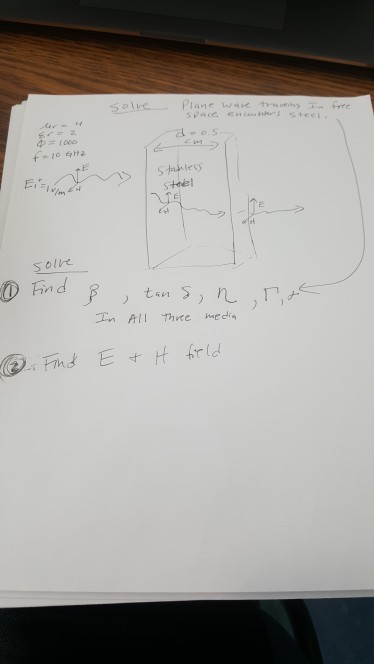 solve Plane wave traveling In free space encounters steel.
μr = 4
εr = 2
σ = 1000
f = 10 GHz
Ei+ = 1 v/m
E
H
d = 0.5 cm
stainless steel
E
H
E
H
solve
① Find β, tan δ, η, Γ, α
In All three media
②. Find E + H field